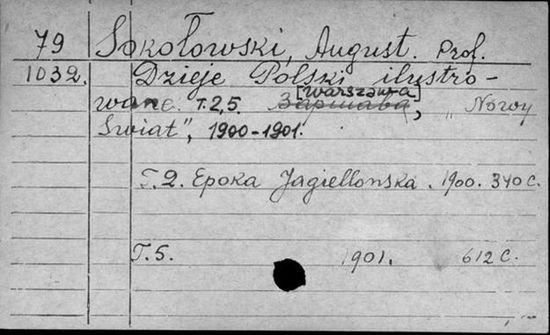 79 Sokołowski, August. Prof.
1032. Dzieje Polski ilustro-
[Warszawa]
wane. T.2,5. Варшава, "Nowy
Świat", 1900-1901.
T.2. Epoka Jagiellonska. 1900. 340 c.
T.5. 1901. 612 c.